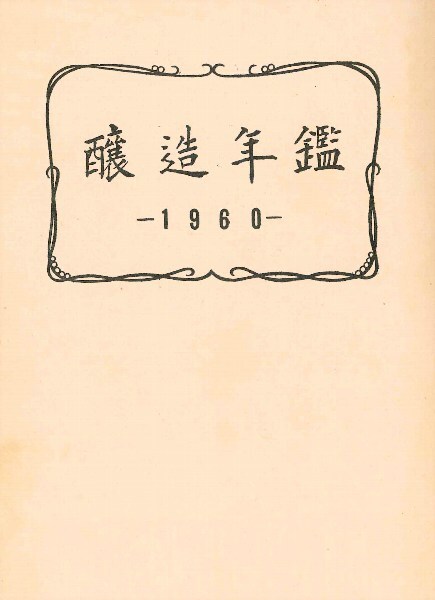 醸造年鑑
-1960-